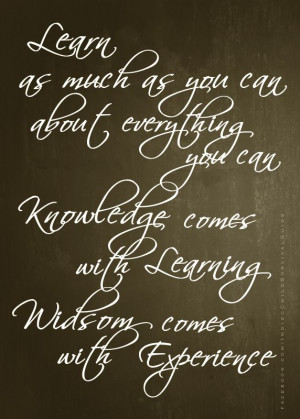 Learn
as much as you can
about everything
you can
Knowledge comes
with Learning
Widsom comes
with Experience